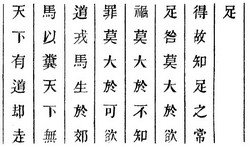 天下有道却走
馬以糞天下無
道戎馬生於郊
罪莫大於可欲
禍莫大於不知
足咎莫大於欲
得故知足之常
足